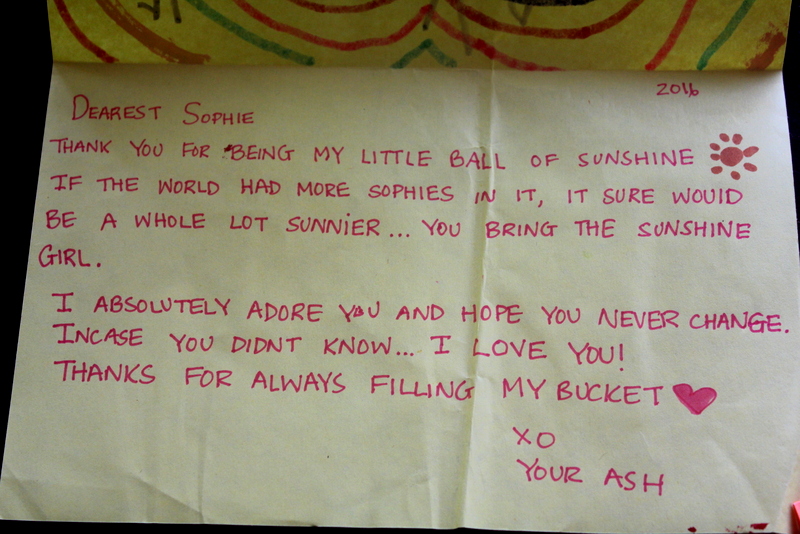 2016
DEAREST SOPHIE
THANK YOU FOR BEING MY LITTLE BALL OF SUNSHINE
IF THE WORLD HAD MORE SOPHIES IN IT, IT SURE WOULD
BE A WHOLE LOT SUNNIER... YOU BRING THE SUNSHINE
GIRL.
I ABSOLUTELY ADORE YOU AND HOPE YOU NEVER CHANGE.
INCASE YOU DIDNT KNOW... I LOVE YOU!
THANKS FOR ALWAYS FILLING MY BUCKET
XO
YOUR ASH